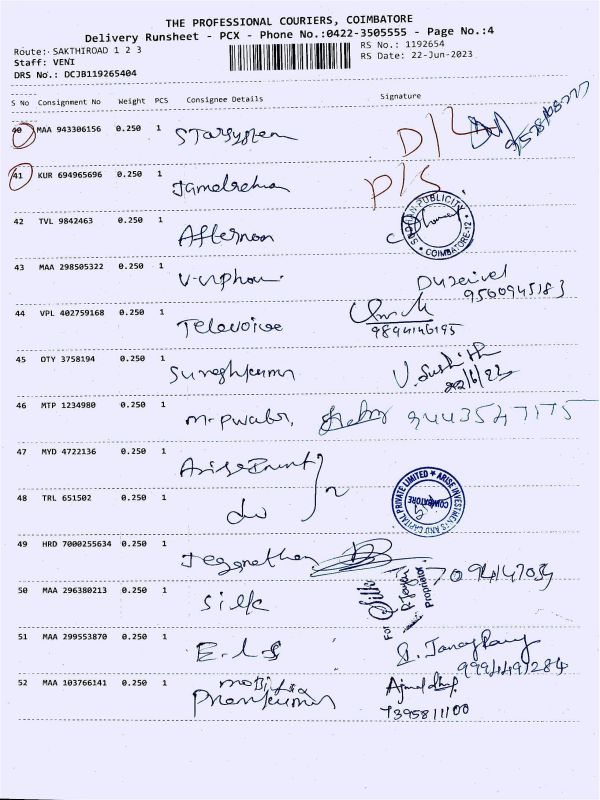 THE PROFESSIONAL COURIERS, COIMBATORE
Delivery Runsheet - PCX - Phone No.:0422-3505555 - Page No.:4
Route: SAKTHIROAD 1 2 3
RS No.: 1192654
Staff: VENI
RS Date: 22-Jun-2023
DRS No.: DCJB119265404
S No Consignment No Weight PCS Consignee Details Signature
40 MAA 943306156 0.250 1
41 KUR 694965696 0.250 1
42 TVL 9842463 0.250 1 Afternoon
SUGUAN PUBLICITY COIMBATORE-12
43 MAA 298505322 0.250 1
9500945183
44 VPL 402759168 0.250 1 Televoice
9894146195
45 OTY 3758194 0.250 1 Sureshkumar
22/6/23
46 MTP 1234980 0.250 1 9443547175
47 MYD 4722136 0.250 1
ARISE INVESTMENTS AND CAPITAL PRIVATE LIMITED COIMBATORE
48 TRL 651502 0.250 1 do
49 HRD 7000255634 0.250 1 Jegenathan
50 MAA 296380213 0.250 1 Silk
For Silk
Proprietor
51 MAA 299553870 0.250 1 E.L.S
9994497284
52 MAA 103766141 0.250 1
7395811100